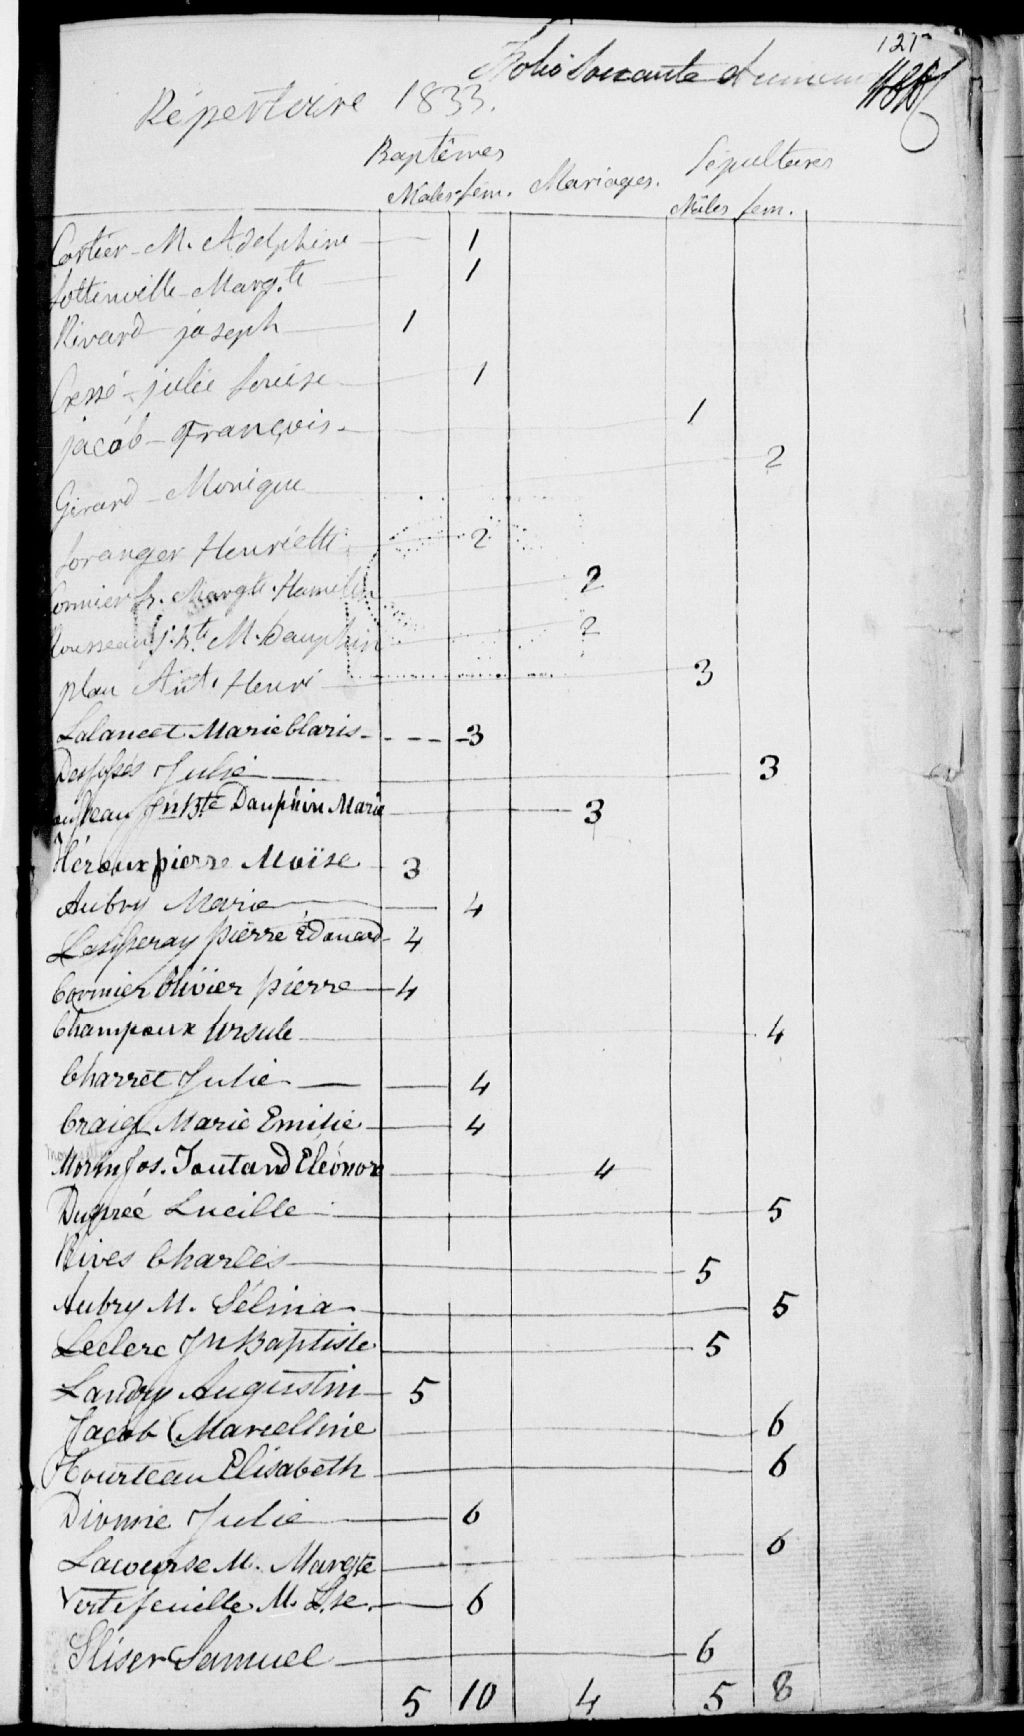 121
Folio Soixante et unieme
Répertoire 1833.
Baptêmes Sépultures
Males fem. Mariages. Mâles fem.
Cartier M. Adelphine 1
Lottinville Marg.te 1
Rivard joseph 1
Cressé julie Louise 1
jacob François 1
Girard Monique 2
Loranger Henriette 2
Cormier Margte. Hamelin 2
Rousseau J. Bte. M. Dauphin 2
plau Ant. Henri 3
Lalancet Marie Claris 3
Desfossés Julie 3
Jn Bte Dauphin Marie 3
Héroux pierre Moïse 3
Aubry Marie 4
Lesperay pierre Edouard 4
Cormier Olivier pierre 4
Champoux Ursule 4
Charret Julie 4
Craig Marie Emilie 4
Morin Jos. Toutand Eléonore 4
Dupréé Lucille 5
Rives Charles 5
Aubry M. Sélina 5
Leclerc Jn Baptiste 5
Landry Augustin 5
Jacob Marcelline 6
Hourteau Elisabeth 6
Dionne Julie 6
Lacourse M. Margte 6
Vertefeuille M. Lse. 6
Sliser Samuel 6
5 10 4 5 8